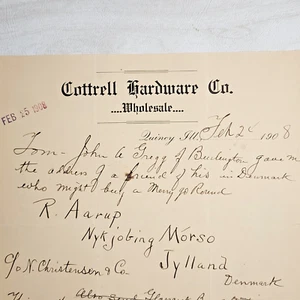 Cottrell Hardware Co.
....Wholesale....
FEB 25 1908
Quincy Ill. Feb 24 1908
Tom - John A Gregg of Burlington gave m
the address of a friend of his in Denmark
who might buy a Merry go Round
R. Aarup
Nykjobing Morso
Jylland
c/o N. Christensen & Co
Denmark
Also Send